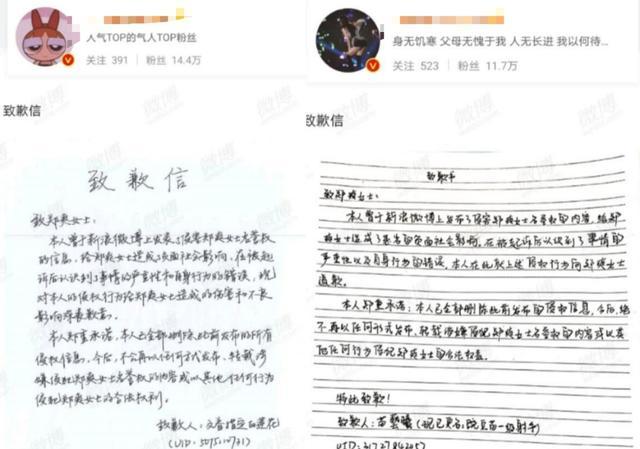 人气TOP的气人TOP粉丝
关注 391 粉丝 14.4万
致歉信
致歉信
致郑爽女士:
本人曾于新浪微博上发表了侵害郑爽女士名誉权
的信息,给郑爽女士造成了负面社会影响,在被起
诉后认识到了事情的严重性和自身行为的错误,现
对本人的侵权行为给郑爽女士造成的伤害和不良
影响深表歉意。
本人郑重承诺,本人已全部删除此前发布的所有
侵权信息,今后,不会再以任何方式发布、转载涉
嫌侵犯郑爽女士名誉权的内容或以其他任何行为
侵犯郑爽女士的合法权利。
致歉人:
(UID:
身无饥寒 父母无愧于我 人无长进 我以何待...
关注 523 粉丝 11.7万
致歉信
致歉书
致郑爽女士:
本人曾于新浪微博上发布了侵害郑爽女士名誉权的内容,给郑
爽女士造成了严重的负面社会影响,在被起诉后认识到了事情的
严重性以及自身行为的错误,本人在此就上述侵权行为向郑爽女士
道歉。
本人郑重承诺:本人已全部删除此前发布的侵权信息,今后,绝
不再以任何形式发布、转载涉嫌侵犯郑爽女士名誉权的内容或以其
他任何行为侵犯郑爽女士的合法权益。
特此致歉!
致歉人:
UID: